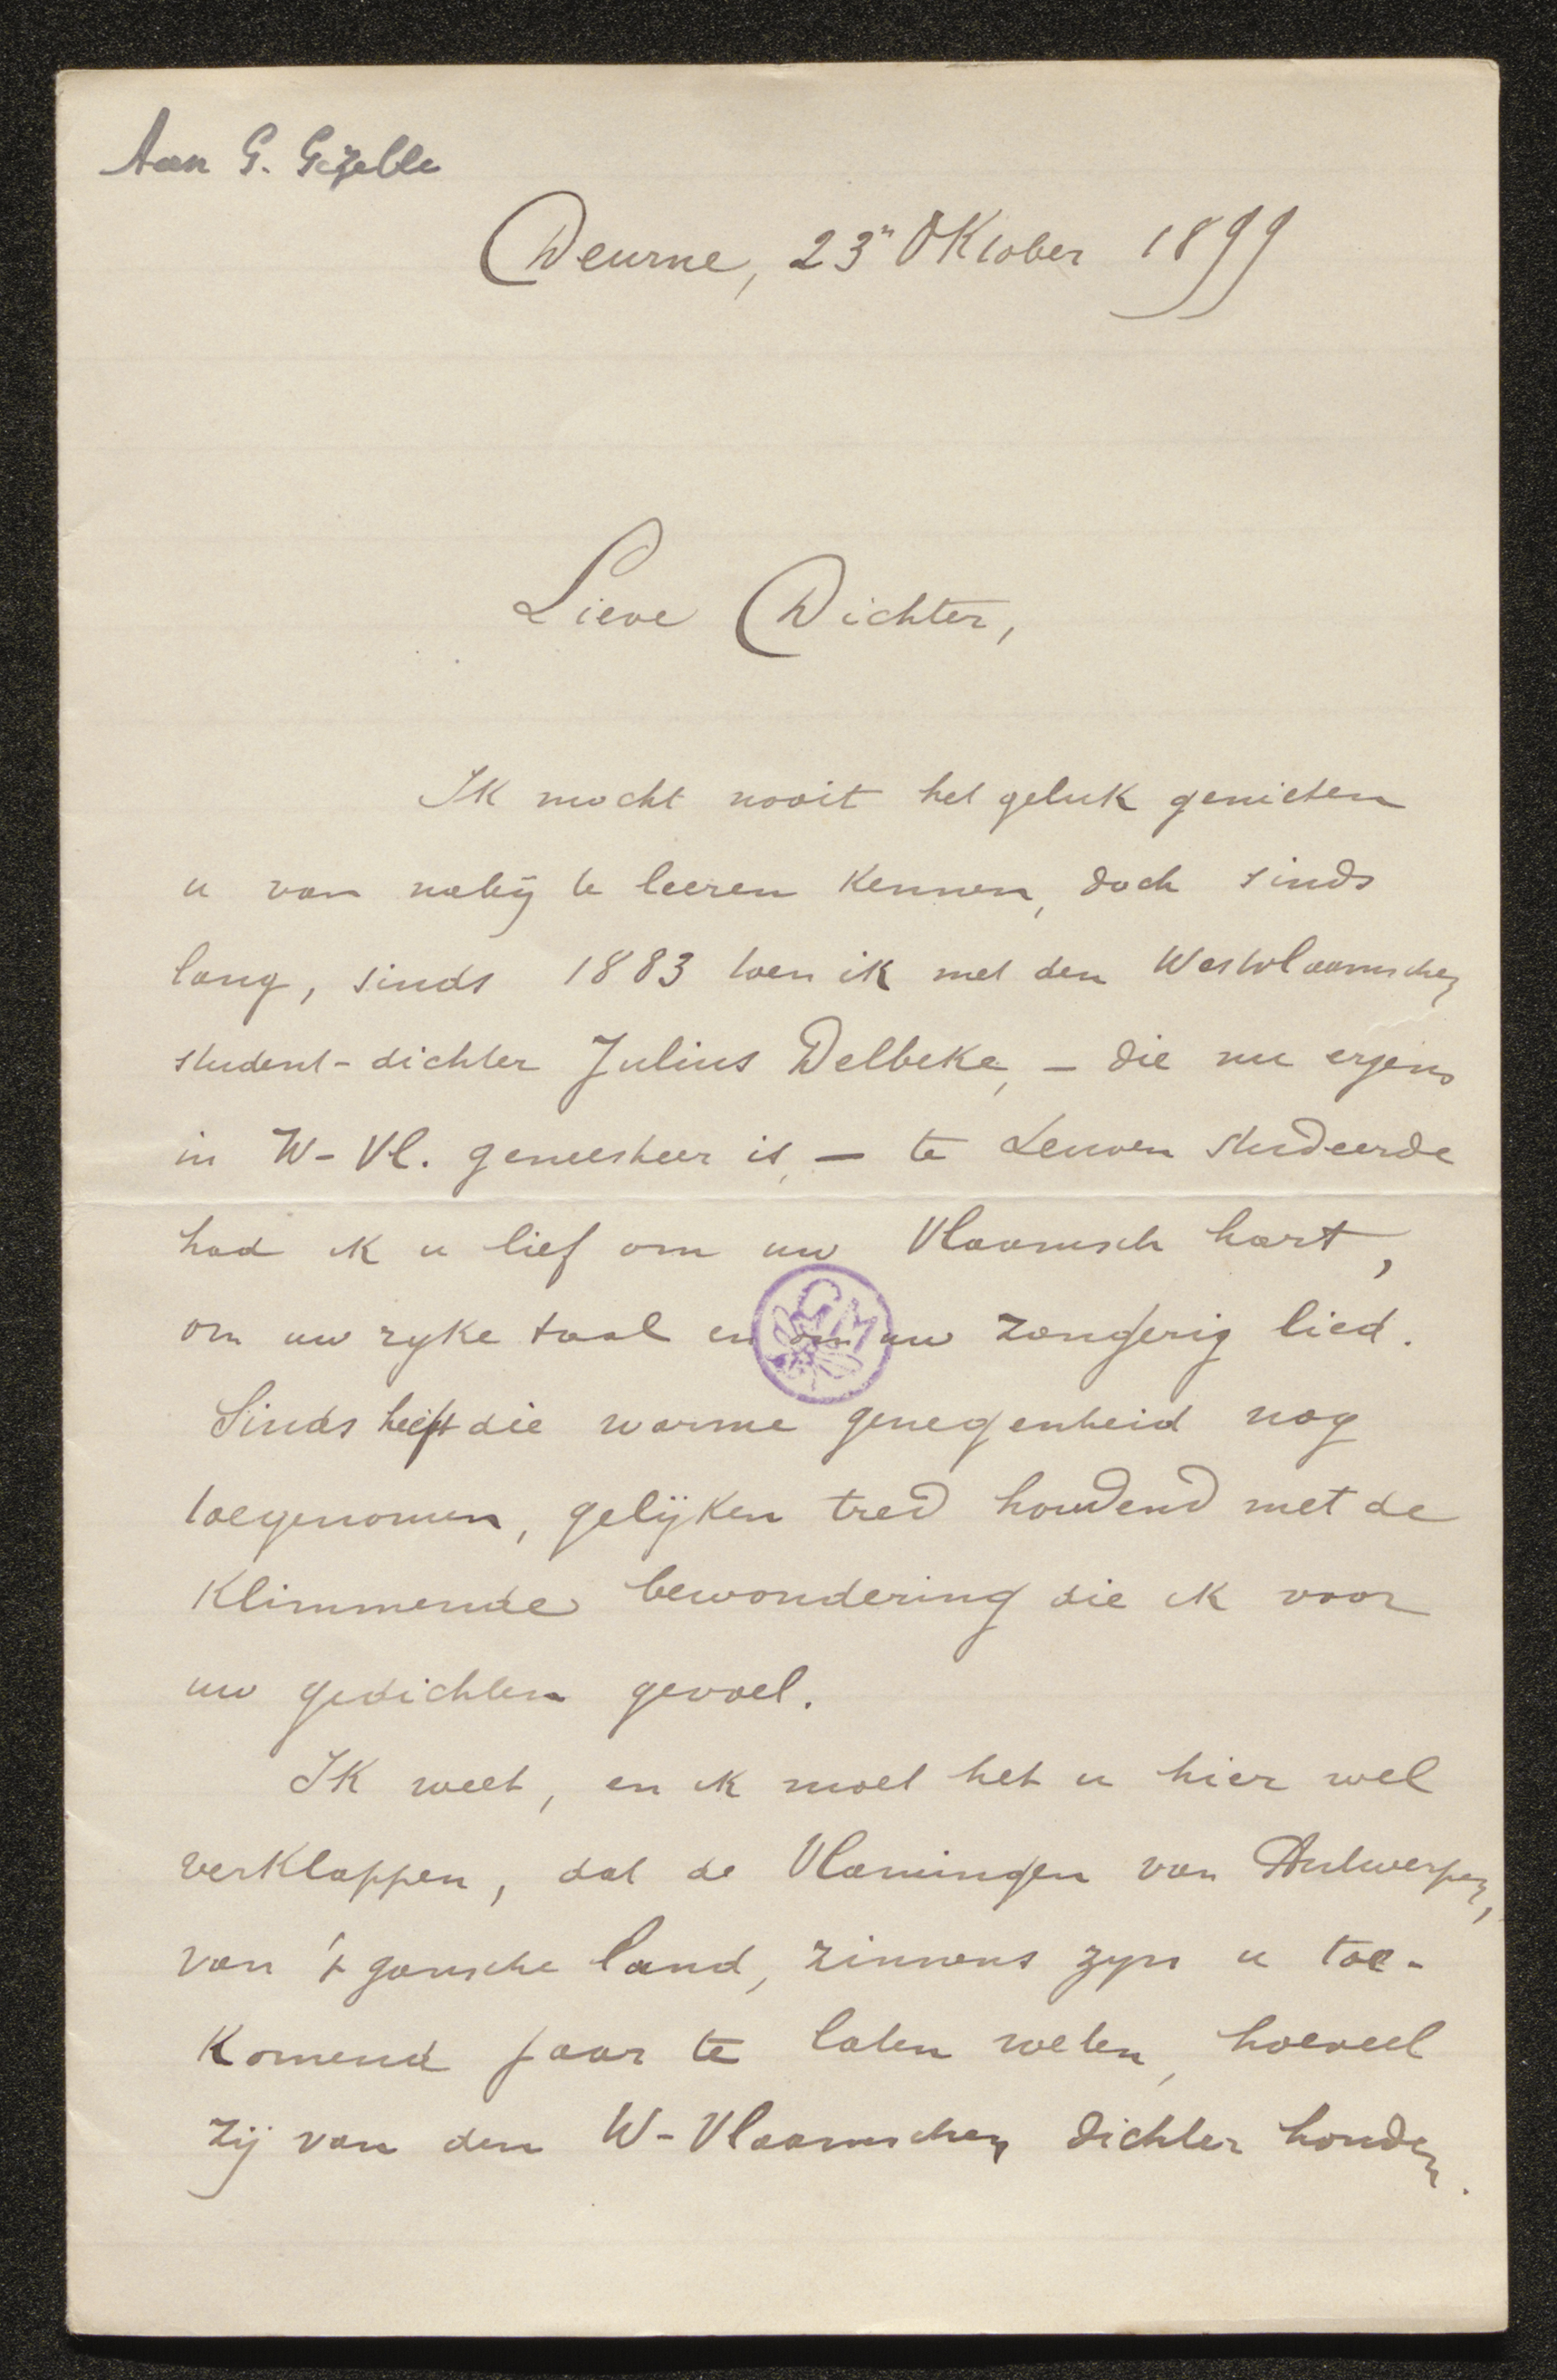 Aan G. Gezelle
Deurne, 23n Oktober 1899
Lieve Dichter,
Ik mocht nooit het geluk genieten
u van nabij te leeren kennen, doch sinds
lang, sinds 1883 toen ik met den Westvlaamschen
student-dichter Julius Delbeke, - die nu ergens
in W-Vl. geneesheer is, - te Leuven studeerde
had ik u lief om uw Vlaamsch hart,
om uw ryke taal en om uw zangerig lied.
Sinds heeft die warme genegenheid nog
toegenomen, gelijken tred houdend met de
klimmende bewondering die ik voor
uw gedichten gevoel.
Ik weet, en ik moet het u hier wel
verklappen, dat de Vlamingen van Antwerpen,
van 't gansche land, zinnens zyn u toe-
komend jaar te laten weten, hoeveel
zij van den W-Vlaamschen dichter houden.